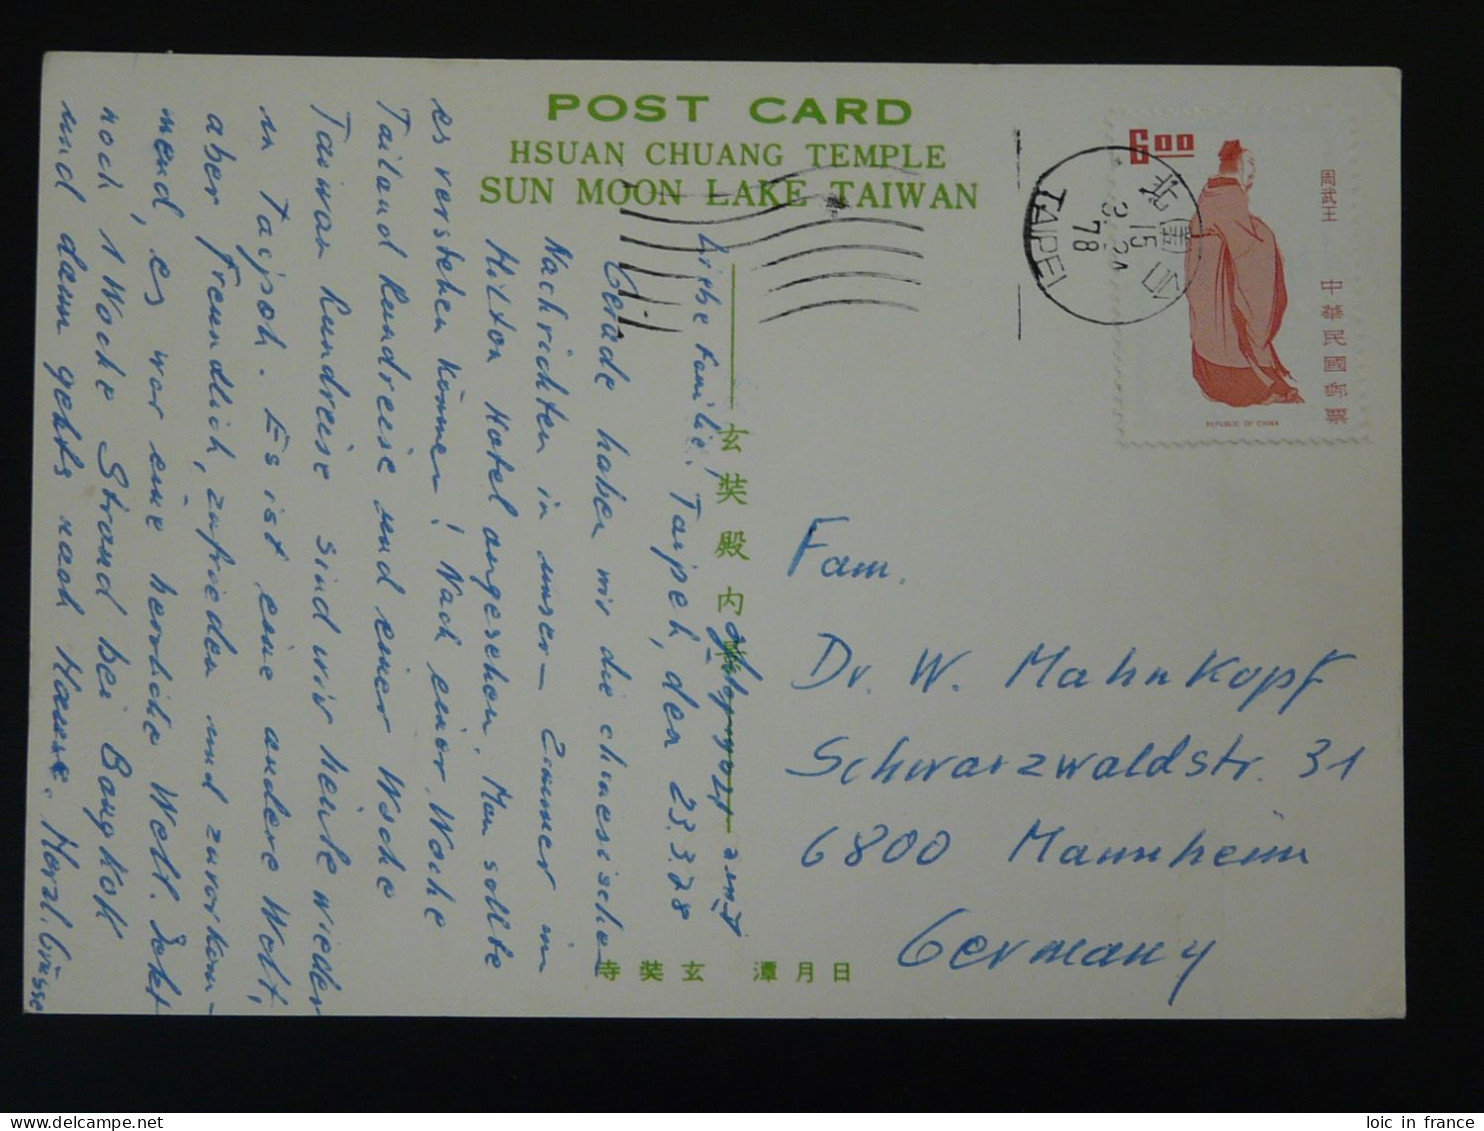 POST CARD
HSUAN CHUANG TEMPLE
SUN MOON LAKE TAIWAN
6.00
周武王
中華民國郵票
REPUBLIC OF CHINA
TAIPEI
78
玄奘殿內
日月潭 玄奘寺
Taipeh, den 23.3.78
Liebe Familie!
Gerade haben wir die chinesischen
Nachrichten in unser- Zimmer im
Hilton Hotel angesehen. Man sollte
es verstehen können! Nach einer Woche
Tailand Rundreise und einer Woche
Taiwan Rundreise sind wir heute wieder
in Taipeh. Es ist eine andere Welt,
aber freundlich, zufrieden und zuvorkom-
mend, es war eine herrliche Welt. Jetzt
noch 1 Woche Strand bei Bangkok
und dann gehts nach Hause. Herzl. Grüsse
Fam.
Dr. W. Mahnkopf
Schwarzwaldstr. 31
6800 Mannheim
Germany
loic in france